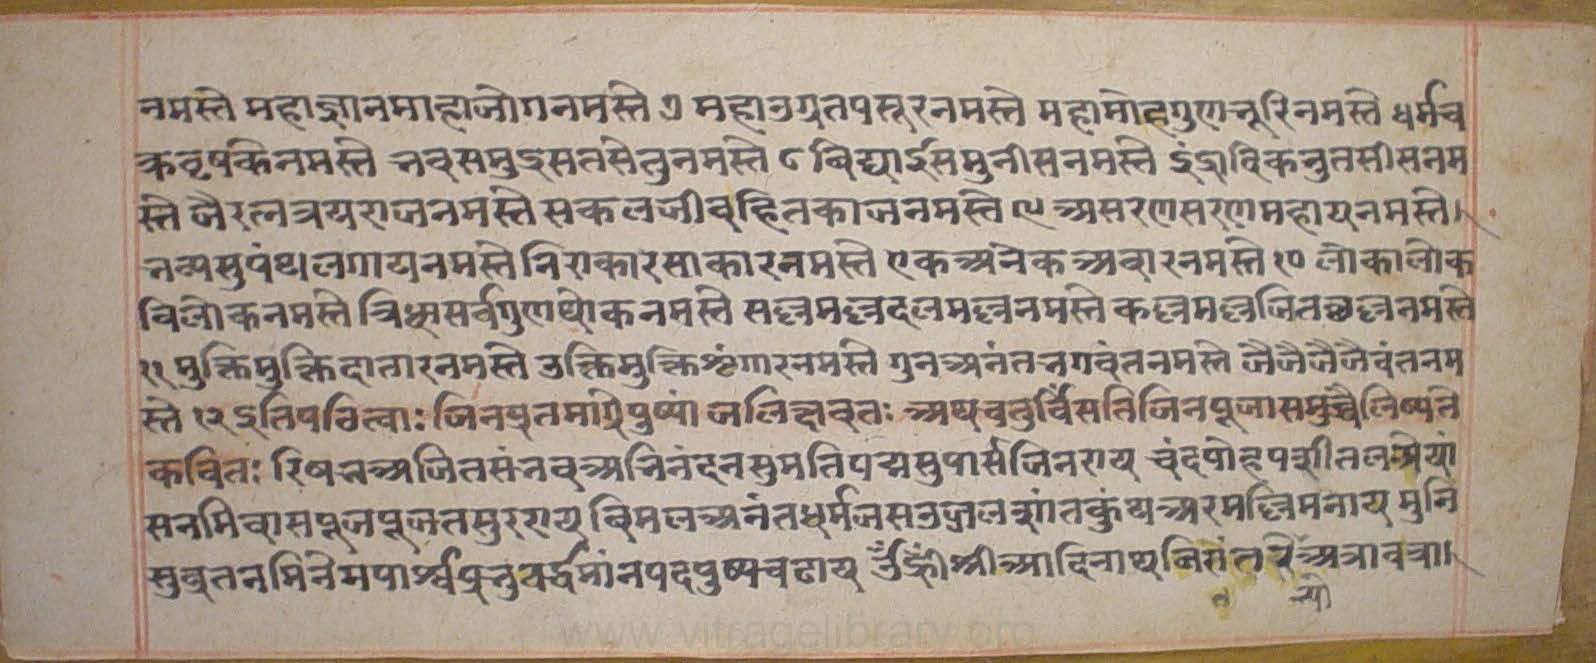 नमस्ते महाज्ञानमाहाजोगनमस्ते ७ महाउग्रतपसूरनमस्ते महामोहगुणभूरिनमस्ते धर्मच
क्रवृषकेनमस्ते भवसमुद्रसतसेतुनमस्ते ८ विद्याईसमुनीसनमस्ते इंद्रादिकनुतसीसनम
स्ते जैरत्नत्रयराजनमस्ते सकलजीवहितकाजनमस्ते ९ असरणसरणमहायनमस्ते
भव्यसुपंथलगायनमस्ते निराकारसाकारनमस्ते एकअनेकअधारनमस्ते १० लोकालोक
विलोकनमस्ते त्रिधासर्वगुणथोकनमस्ते सल्लमल्लदलमल्लनमस्ते कल्लमल्लजितछल्लनमस्ते
११ मुक्तिमुक्तिदातारनमस्ते उक्तिमुक्तिशृंगारनमस्ते गुनअनंतभगवंतनमस्ते जैजैजैजैवंतनम
स्ते १२ इतिपठित्वाः जिनप्रतमाग्रेपुष्पां जलिक्षवृतः अथचतुर्विंसतिजिनपूजासमुच्चैलिष्यते
कवितः रिषभअजितसंभवअभिनंदनसुमतिपद्मसुपार्सजिनराय चंदपोहपशीतलश्रेयां
सनमिवासपूजपूजतसुरराय विमलअनंतधर्मजसउजलशांतकुंथअरमल्लिमनाय मुनि
सुवृतनमिनेमपार्श्वप्रभुवर्द्धमांनपदपुष्पचढाय उँह्रीँश्रीआदिनाथजिसंतरिअत्रावचा